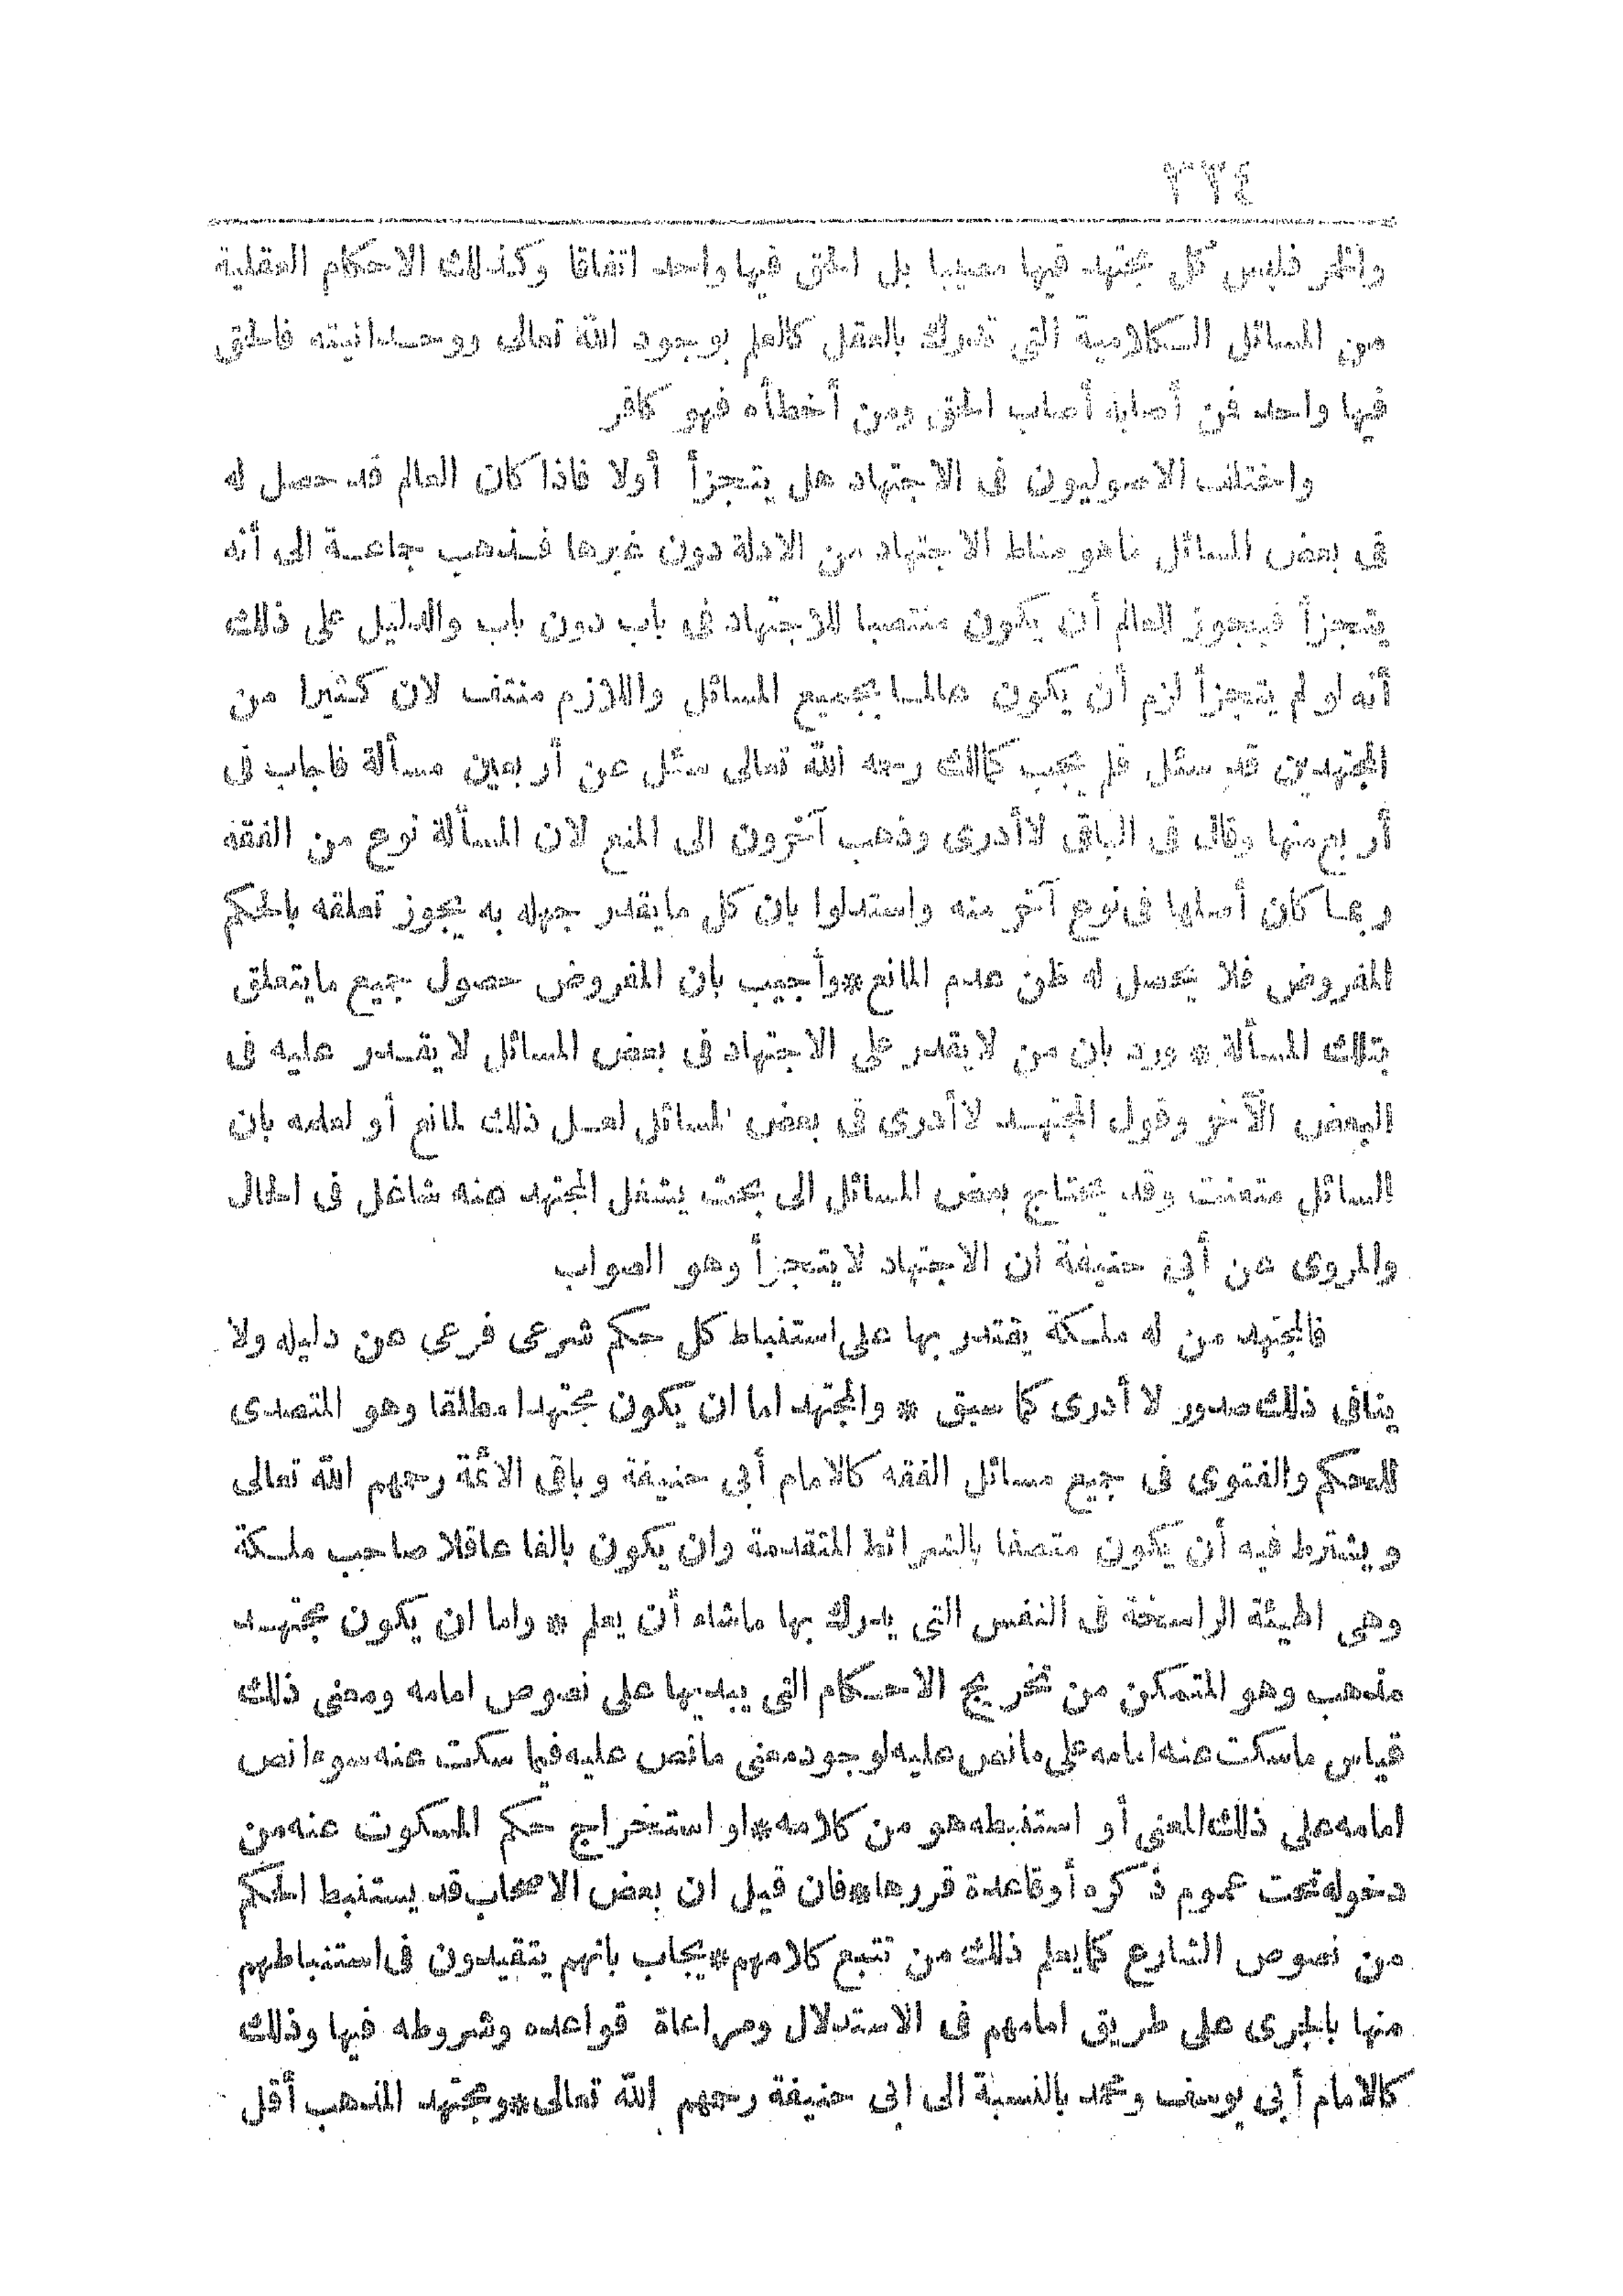 ٣٣٤
والخمر فليس كل مجتهد فيها مصيبا بل الحق فيها واحد اتفاقا وكذلك الاحكام العقلية
من المسائل الكلامية التي تدرك بالعقل كالعلم بوجود الله تعالى ووحدانيته فالحق
فيها واحد فمن أصابه أصاب الحق ومن أخطأه فهو كافر
واختلف الاصوليون فى الاجتهاد هل يتجزأ أولا فاذا كان العالم قد حصل له
فى بعض المسائل ماهو مناط الاجتهاد من الادلة دون غيرها فذهب جماعة الى أنه
يتجزأ فيجوز للعالم أن يكون منتصبا للاجتهاد فى باب دون باب والدليل على ذلك
أنه لو لم يتجزأ لزم أن يكون عالما بجميع المسائل واللازم منتف لان كثيرا من
المجتهدين قد سئل فلم يجب كمالك رحمه الله تعالى سئل عن أربعين مسألة فاجاب فى
أربع منها وقال فى الباقى لاأدرى وذهب آخرون الى المنع لان المسألة نوع من الفقه
ربما كان أصلها فى نوع آخر منه واستدلوا بان كل مايقدر جهله به يجوز تعلقه بالحكم
المفروض فلا يحصل له ظن عدم المانع*وأجيب بان المفروض حصول جميع مايتعلق
بتلك المسألة * ورد بان من لايقدر على الاجتهاد فى بعض المسائل لايقدر عليه فى
البعض الآخر وقول المجتهد لاأدرى فى بعض المسائل لعل ذلك لمانع أو لعلمه بان
السائل متعنت وقد يحتاج بعض المسائل الى بحث يشغل المجتهد عنه شاغل فى الحال
والمروى عن أبى حنيفة ان الاجتهاد لايتجزأ وهو الصواب
فالمجتهد من له ملكة يقتدر بها على استنباط كل حكم شرعى فرعى عن دليله ولا
ينافى ذلك صدور لا أدرى كما سبق * والمجتهد اما ان يكون مجتهدا مطلقا وهو المتصدى
للحكم والفتوى فى جميع مسائل الفقه كالامام أبى حنيفة وباقى الائمة رحمهم الله تعالى
ويشترط فيه أن يكون متصفا بالشرائط المتقدمة وان يكون بالغا عاقلا صاحب ملكة
وهى الهيئة الراسخة فى النفس التى يدرك بها ماشاء أن يعلم * واما ان يكون مجتهد
مذهب وهو المتمكن من تخريج الاحكام التى يبديها على نصوص امامه ومعنى ذلك
قياس ماسكت عنه امامه على مانص عليه لوجود معنى مانص عليه فيما سكت عنه سوء انص
امامه على ذلك المعنى أو استنبطه هو من كلامه*او استخراج حكم المسكوت عنه من
دخوله تحت عموم ذكره أوقاعدة قررها*فان قيل ان بعض الاصحاب قد يستنبط الحكم
من نصوص الشارع كمايعلم ذلك من تتبع كلامهم*يجاب بانهم يتقيدون فى استنباطهم
منها بالجرى على طريق امامهم فى الاستدلال ومراعاة قواعده وشروطه فيها وذلك
كالامام أبى يوسف ومحمد بالنسبة الى ابى حنيفة رحمهم الله تعالى*ومجتهد المذهب أقل